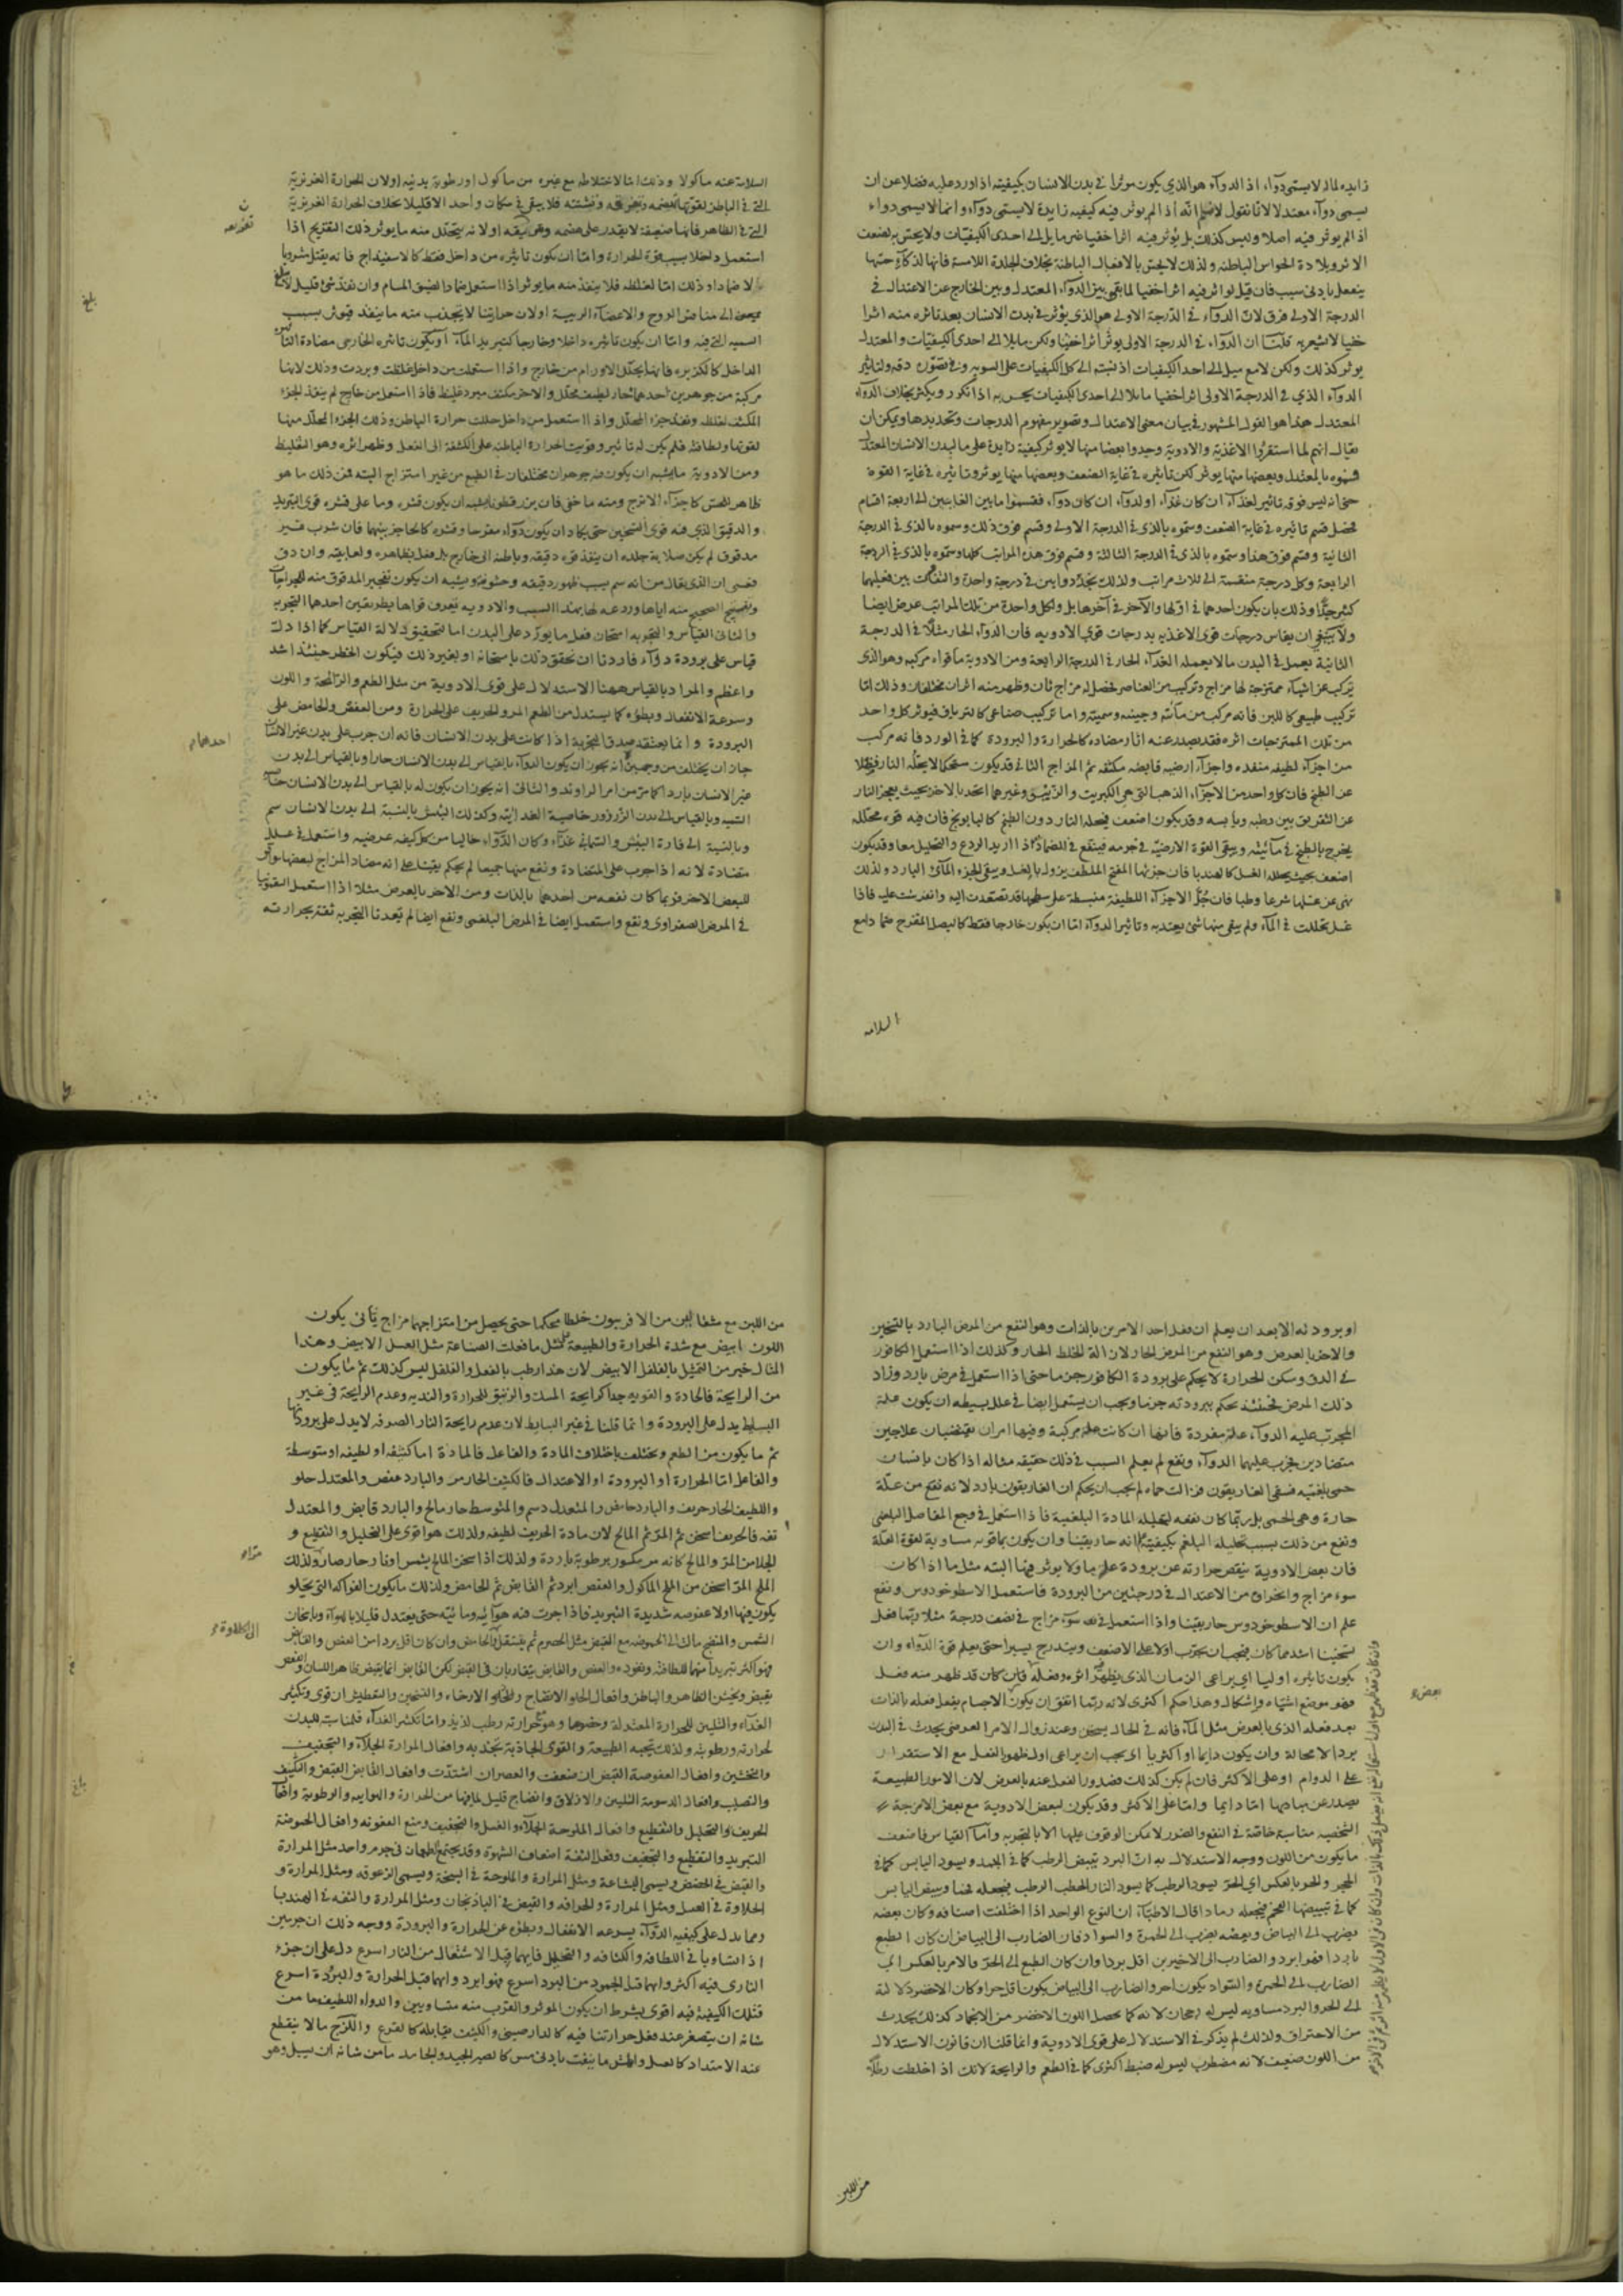 زايده لما لا يسمى دوآء اذ الدوآء هو الذي يكون موثرا في بدن الانسان بكيفيته اذا ورد عليه فضلا عن ان
يسمى دوآء معتدلا لانا نقول لا نسلم انه اذا لم يوثر فيه كيفيه زايدة لا يسمى دوآء وانما لا يسمى دواء
اذ الم يوثر فيه اصلا وليس كذلك بل يوثر فيه اثرا خفيا غير مايل الى احدى الكيفيات ولا يحس به لضعف
الاثر وبلادة الحواس الباطنه ولذلك لا يحس بالافعال الباطنة بخلاف الجلدة اللامسة فانها لذكآء حسها
ينفعل بادنى سبب فان قيل لو اثر فيه اثرا خفيا لما بقى بين الدوآء المعتدل وبين الخارج عن الاعتدال في
الدرجة الاولى فرق لان الدوآء في الدرجة الاولى هو الذي يوثر في بدن الانسان بعد تاثره منه اثرا
خفيا لا يشعر به قلنا ان الدوآء في الدرجة الاولى يوثر اثرا خفيا ولكن مايلا الى احدى الكيفيات والمعتدل
يوثر كذلك ولكن لا مع ميل الى احد الكيفيات اذ نسبته الى كل الكيفيات على السويه وفي تصوره دقه ولتاثير
الدوآء الذي في الدرجة الاولى اثرا خفيا مايلا الى احدى الكيفيات يحس به اذا تكرر ويكثر بخلاف الدوآء
المعتدل هذا هو القول المشهور في بيان معنى الاعتدال وتصوير مفهوم الدرجات وتحديدها ويمكن ان
يقال انهم لما استقروا الاغذية والادوية وجدوا بعضا منها لا يوثر كيفية زايدة على ما لبدن الانسان المعتدل
فسموه بالمعتدل وبعضها منها يوثر لكن تاثيره في غاية الضعف وبعضها منها يوثر وتاثيره في غاية القوة
حتى انه ليس فوقه تاثير لغذآء ان كان غذآء او لدوآء ان كان دوآء فقسموا ما بين الغايتين الى اربعة اقسام
فحصل قسم تاثيره في غاية الضعف وسموه بالذي في الدرجة الاولى وقسم فوق ذلك وسموه بالذي في الدرجة
الثانية وقسم فوق هذا وسموه بالذي في الدرجة الثالثة وقسم فوق هذه المراتب كلها وسموه بالذي في الدرجة
الرابعة وكل درجة منقسمة الى ثلاث مراتب ولذلك تجد دوايين في درجة واحدة والتفاوت بين فعليهما
كثير جدا وذلك بان يكون احدهما في اولها والآخر في آخرها بل ولكل واحدة من تلك المراتب عرض ايضا
ولا ينبغي ان يقاس درجات قوى الاغذيه بدرجات قوى الادويه فان الدوآء الحار مثلا في الدرجة
الثانية يعمل في البدن ما لا يعمله الغذآء الحار في الدرجة الرابعة ومن الادوية ما قواه مركبه وهو الذي
تركب عن اشيآء ممتزجة لها مزاج وتركيب من العناصر فحصل له مزاج ثان وظهر منه اثران مختلفان وذلك اما
تركيب طبيعي كاللبن فانه مركب من مآئيه وجبنيه وسمنيه واما تركيب صناعي كالترياق فيوثر كل واحد
من تلك الممتزجات اثره فقد يصدر عنه اثار مضاده كالحرارة والبرودة كما في الورد فانه مركب
من اجزآء لطيفه منفده واجزآء ارضيه قابضه مكثفه ثم المزاج الثاني قد يكون مستحكما لا يحله النار فضلا
عن الطبخ فان كل واحد من الاجزآء الذهب التي هي الكبريت والزيبق وغيرهما اتحد بالاخر بحيث يعجز النار
عن التفريق بين رطبه ويابسه وقد يكون اضعف فيحله النار دون الطبخ كالبابونج فان فيه قوة محلله
يخرج بالطبخ في مآئيته ويبقى القوة الارضية في جرمه فينفع في الضماد اذا اريد الردع والتحليل معا وقد يكون
اضعف بحيث يحلله الغسل كالهندبا فان جزئها المفتح الملطف يزول بالغسل ويبقى الجزء المآئي البارد ولذلك
نهى عن غسلها شرعا وطبا فان جل الاجزآء اللطيفة منبسطة على سطحها قد تصعدت اليه وانفرشت عليه فاذا
غسل تحللت في المآء ولم يبقى منها شئ يعتد به وتاثير الدوآء اما ان يكون خارجا فقط كالبصل المقرح ضمادا مع
السلامه
السلامة عنه ماكولا وذلك اما لاختلاطه مع غيره من ماكول او رطوبة بدنيه او لان الحرارة الغريزية
التي في الباطن لقوتها تهضمه وتفرقه وتشتته فلا يبقى في مكان واحد الا قليلا بخلاف الحرارة الغريزية
التي في الظاهر فانها ضعيفة لا يقدر على هضمه وتفريقه او لانه يتحلل منه ما يوثر ذلك التقريح اذا
استعمل داخلا بسبب قوة الحرارة واما ان يكون تاثيره من داخل فقط كالاسفيداج فانه يقتل مشروبا
لا ضمادا وذلك اما لغلظه فلا ينفذ منه ما يوثر اذا استعمل ضمادا لضيق المسام وان نفذ شئ قليل
الى منافذ الروح والاعضآء الريسة او لان حرارتنا لا يجذب منه ما ينفذ فيوثر بسبب
السميه التي فيه واما ان يكون تاثيره داخلا وخارجا كتبريد المآء او يكون تاثيره الخارجي مضادة التاثير
الداخل كالكزبره فانها يحلل الاورام من خارج واذا استعملت من داخل غلظت وبردت وذلك لانها
مركبة من جوهرين احدهما حار لطيف محلل والاخر مكثف مبرد غليظ فاذا استعمل من خارج لم ينفذ الجزء
المكثف لغلظه ونفذ جزء المحلل واذا استعمل من داخل حللت حرارة الباطن وذلك الجزء المحلل منها
لقوتها ولطافته فلم يكن له تاثير وقويت الحرارة الباطنه على الكثفة الى الفعل وظهر اثره وهو التغليظ
ومن الادوية ما يشبه ان يكون فيه جوهران مختلفان في الطبع من غير امتزاج البته فمن ذلك ما هو
ظاهر للحس كاجزآء الاترج ومنه ما خفى فان بزر قطونا يشبه ان يكون قشره وما على قشره قوى التبريد
والدقيق الذي فيه قوى التسخين حتى يكاد ان يكون دوآء مقرحا وقشره كالحاجز بينهما فان شرب غير
مدقوق لم يكن صلابة جلده ان ينفذ قوة دقيقه وباطنه الى خارج بل فعل بظاهره ولعابيته وان دق
فعسى ان الذي يقال من انه سم بسبب ظهور دقيقه وحشوه ويشبه ان يكون تفجير المدقوق منه للجراحات
وتفتيح الصحيح منه اياها وردعه لها بهذا السبب والادويه يعرف قواها بطريقين احدهما التجربه
والثاني القياس والتجربه امتحان فعل ما يورد على البدن اما لتحقيق دلالة القياس كما اذا دلت
قياس على برودة دوآء فاردنا ان نحقق ذلك بامتحانه او بغير ذلك فيكون الخطر حينئذ اشد
واعظم والمراد بالقياس ههنا الاستدلال على قوى الادوية من مثل الطعم والرائحة واللون
وسرعة الانفعال وبطؤه كما يستدل من الطعم المر والحريف على الحرارة ومن العفص والحامض على
البرودة وانما يعتقد صدق التجربة اذا كانت على بدن الانسان فانه ان جرب على بدن غير الانسان
جاز ان يختلف من وجهين انه يجوز ان يكون الدوآء بالقياس الى بدن الانسان حارا وبالقياس الى بدن
غير الانسان باردا كما مر من امر الراوند والثاني انه يجوز ان يكون له بالقياس الى بدن الانسان خاصية
السم وبالقياس الى بدن الزرزور خاصية الغذائية وكذلك البيش بالنسبة الى بدن الانسان سم
وبالنسبة الى فارة البيش والسماني غذآء وكان الدوآء خاليا من كل كيفيه عرضيه واستعمل في علل
متضادة لانه اذا جرب على المتضادة ونفع منها جميعا لم يحكم يقينا على انه مضاد المزاج لبعضها موافق
للبعض الاخر فربما كان نفعه من احدهما بالذات ومن الاخر بالعرض مثلا اذا استعمل السقمونيا
في المرض الصفراوي ونفع واستعمل ايضا في المرض البلغمي ونفع ايضا لم تفدنا التجربه ثقة بحرارته
احدهما
بلغ
او برودته الا بعد ان يعلم ان فعل احد الامرين بالذات وهو النفع من المرض البارد بالتسخين
والاخر بالعرض وهو النفع من المرض الحار لازالة الخلط الحار وكذلك اذا استعمل الكافور
في الدق وسكن الحرارة لا يحكم على برودة الكافور جزما حتى اذا استعمل في مرض بارد وزاد
ذلك المرض فحينئذ يحكم ببرودته جزما ويجب ان يستعمل ايضا في علل بسيطه ان يكون علة
المجرب عليه الدوآء علة مفردة فانها ان كانت علة مركبة وفيها امران يقتضيان علاجين
متضادين فجرب عليهما الدوآء ونفع لم يعلم السبب في ذلك حقيقه مثاله اذا كان بانسان
حمى بلغميه فسقى الغاريقون فزالت حماه لم يجب ان يحكم ان الغاريقون بارد لانه نفع من علة
حارة وهي الحمى بل ربما كان نفعه لتحليله المادة البلغمية فاذا استعمل في وجع المفاصل البلغمي
ونفع من ذلك بسبب تحليله البلغم بكيفيته علم انه حار يقينا وان يكون ما قوته مساوية لقوة العلة
فان بعض الادوية ينقص حرارته عن برودة علة ما ولا يوثر فيها البته مثل ما اذا كان
سوء مزاج وانحراف من الاعتدال في درجتين من البرودة فاستعمل الاسطوخودوس ونفع
علم ان الاسطوخودوس حار يقينا واذا استعمل في سوء مزاج في نصف درجة مثلا ربما فعل
تسخينا اشد مما كان فيجب ان يجرب اولا على الاضعف ويتدرج يسيرا حتى يعلم قوة الدوآء وان
يكون تاثيره اوليا اي يراعى الزمان الذي يظهر اثره وفعله فان كان قد ظهر منه فعل
فهو موضع اشتباه واشكال وهذا حكم اكثري لانه ربما اتفق ان يكون الاجسام يفعل فعله بالذات
بعد فعله الذي بالعرض مثل المآء فانه في الحال يسخن وعند زوال الامر العرضي يحدث في البدن
بردا لا محالة وان يكون دايما او اكثريا اي يجب ان يراعى اول ظهور الفعل مع الاستقرار
على الدوام او على الاكثر فان لم يكن كذلك فصدور الفعل عنه بالعرض لان الامور الطبيعية
يصدر عن مباديها اما دايما واما على الاكثر وقد يكون لبعض الادوية مع بعض الامزجة
الشخصيه مناسبة خاصة في النفع والضرر لا يمكن الوقوف عليها الا بالتجربه وآما القياس فاضعف
ما يكون من اللون ووجه الاستدلال به ان البرد يبيض الرطب كما في الجمد ويسود اليابس كما في
الحجر والحر بالعكس اي الحر يسود الرطب كما يسود النار الحطب الرطب فيجعله فحما ويبيض اليابس
كما في تبييضها الفحم فيجعله رمادا قال الاطبآء ان النوع الواحد اذا اختلفت اصنافه وكان بعضه
يضرب الى البياض وبعضه يضرب الى الحمرة والسواد فان الضارب الى البياض ان كان الطبع
باردا فهو ابرد والضارب الى الاخيرين اقل بردا وان كان الطبع الى الحر فالامر بالعكس اي
الضارب الى الحمرة والسواد يكون احر والضارب الى البياض يكون اقل حرا وكان الاخضر دلالة
الى الحر والبرد مساويه ليس له رجحان لانه كما يحصل اللون الاخضر من الانجماد كذلك يحدث
من الاحتراق ولذلك لم يذكر في الاستدلال على قوى الادوية وانما قلنا ان قانون الاستدلال
من اللون ضعيف لانه مضطرب ليس له ضبط اكثري كما في الطعم والرايحة لانك اذا خلطت رطلا
من اللبن
من اللبن مع مثقالين من الافربيون خلطا محكما حتى يحصل من امتزاجهما مزاج ثاني يكون
اللون ابيض مع شدة الحرارة والطبيعة مثل ما فعلت الصناعة مثل العسل الابيض وهذا
المثال خير من التمثيل بالفلفل الابيض لان هذا رطب بالفعل والفلفل ليس كذلك ثم ما يكون
من الرايحة فالحادة والقويه جدا كرايحة المسك والزنبق للحرارة والنديه وعدم الرايحة في غير
البسايط يدل على البرودة وانما قلنا في غير البسايط لان عدم رايحة النار الصرفه لا يدل على برودتها
ثم ما يكون من الطعم ويختلف باختلاف المادة والفاعل فالمادة اما كثيفه او لطيفه او متوسطة
والفاعل اما الحرارة او البرودة او الاعتدال فالكثيف الحار مر والبارد عفص والمعتدل حلو
واللطيف الحار حريف والبارد حامض والمعتدل دسم والمتوسط حار مالح والبارد قابض والمعتدل
تفه فالحريف اسخن ثم المر ثم المالح لان مادة الحريف لطيفه ولذلك هو اقوى على التحليل والتقطيع و
الجلا من المر والمالح كانه مر مكسور برطوبة باردة ولذلك اذا سخن المالح بشمس او نار حار صار مرا ولذلك
الملح المر اسخن من الملح الماكول والعفص ابرد ثم القابض ثم الحامض ولذلك ما يكون الفواكه التي يحلو
يكون فيها اولا عفوصه شديدة التبريد فاذا جرت فيه هوآئيه ومآئيه حتى يعتدل قليلا بالهوآء وباسخان
الشمس والنضج مالت الى الحموضه مع القبض مثل الحصرم ثم ينتقل الى الحامض وان كان اقل بردا من العفص والقابض
فهو اكثر تبريدا منهما للطافته ونفوذه والعفص والقابض يتقاربان في القبض لكن القابض انما يقبض ظاهر اللسان والعفص
يقبض ويخشن الظاهر والباطن وافعال الحلو الانضاج والجلو الارخاء والتسخين والتعطيش ان قوى وتكثير
الغذآء والتليين للحرارة المعتدلة وخصوصا وهو مع حرارته رطب لذيذ واما تكثير الغذآء فلمناسبته للبدن
لحرارته ورطوبته ولذلك يحبه الطبيعة والقوى الجاذبة يجذبه وافعال المرارة الجلآء والتجفيف
والتخشين وافعال العفوصة القبض ان ضعفت والعصر ان اشتدت وافعال القابض القبض والتكثيف
والتصليب وافعال الدسومة التليين والازلاق وانضاج قليل لما فيها من الحرارة والهوائية والرطوبة وافعال
الحريف والتحليل والتقطيع وافعال الملوحة الجلآء والغسل والتجفيف ومنع العفونه وافعال الحموضة
التبريد والتقطيع والتجفيف وفعل التفه اضعاف الشهوة وقد يجتمع طعمان في جرم واحد مثل المرارة
والقبض في الحضض ويسمى البشاعة ومثل المرارة والملوحة في السبخة ويسمى الزعوقه ومثل المرارة و
الحلاوة في العسل ومثل المرارة والحرافه والقبض في الباذنجان ومثل المرارة والتفه في الهندبا
ومما يدل على كيفيه الدوآء سرعه الانفعال وبطؤه عن الحرارة والبرودة ووجه ذلك ان جرمين
اذا تساويا في اللطافه والكثافه والتخلخل فايهما قبل الاشتعال من النار اسرع دل على ان جزء
الناري فيه اكثر وايهما قبل الجمود من البرد اسرع فهو ابرد وايهما قبل الحرارة والبرودة اسرع
فتلك الكيفية فيه اقوى بشرط ان يكون الموثر والقرب منه متساويين والدواء اللطيف ما من
شانه ان يتصغر عند فعل حرارتنا فيه كالدارصيني والكثيف مقابله كالقرع واللزج ما لا ينقطع
عند الامتداد كالعسل والهش ما يتفتت بادنى مس كالصبر الجيد والجامد ما من شانه ان يسيل وهو
بلغ